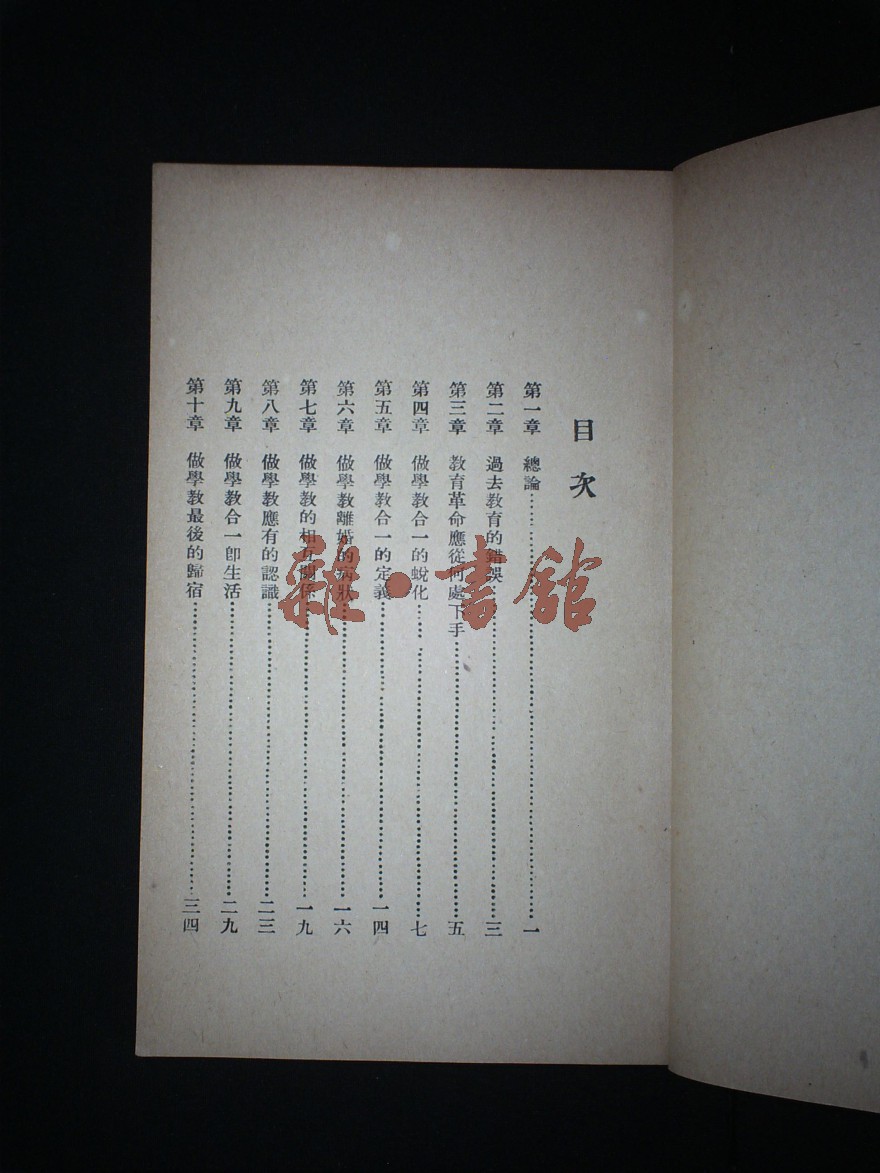 目次
第一章 總論……一
第二章 過去教育的錯誤……三
第三章 教育革命應從何處下手……五
第四章 做學教合一的蛻化……七
第五章 做學教合一的定義……一四
第六章 做學教離婚的病狀……一六
第七章 做學教的相互關係……一九
第八章 做學教應有的認識……二三
第九章 做學教合一卽生活……二九
第十章 做學教最後的歸宿……三四
雜·書館